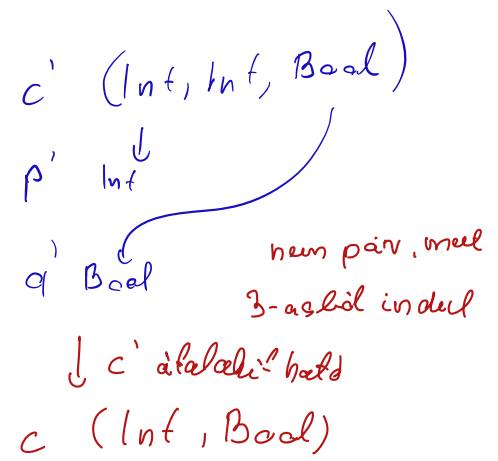 c' (Int, Int, Bool)
p' Int
q' Bool
nem pár, mert
3-asból indul
c' átalakítható
c (Int, Bool)